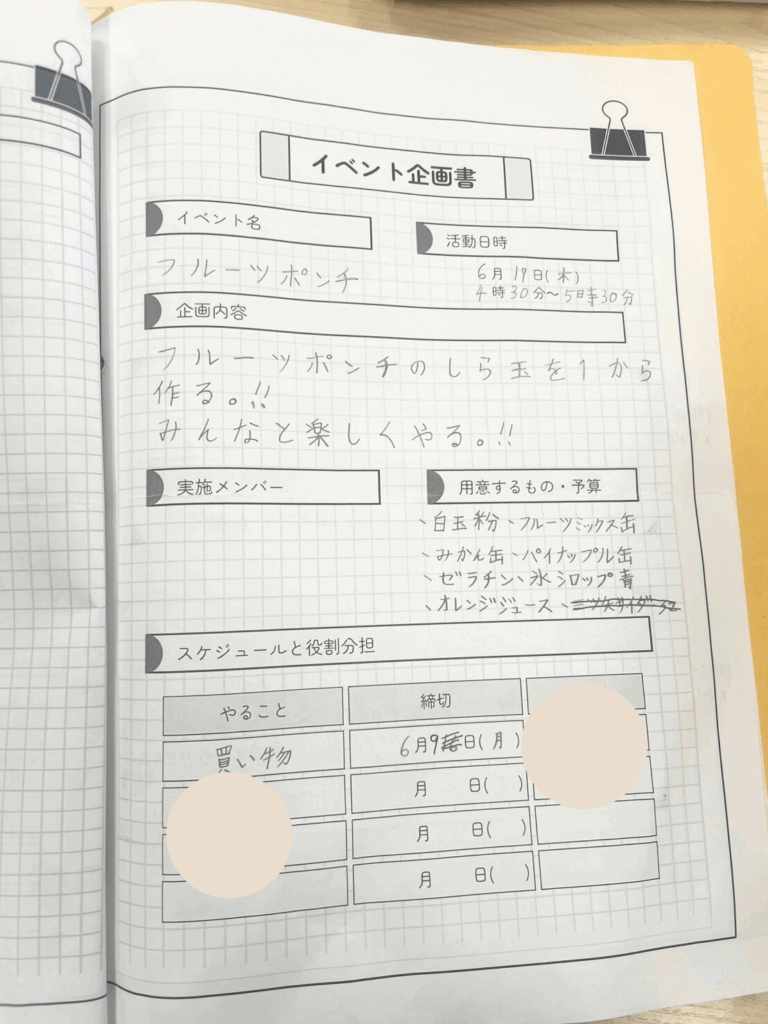 イベント企画書
イベント名
活動日時
フルーツポンチ
6月19日(木)
4時30分~5時30分
企画内容
フルーツポンチのしら玉を1から
作る。!!
みんなと楽しくやる。!!
実施メンバー
用意するもの・予算
、白玉粉、フルーツミックス缶
、みかん缶、パイナップル缶
、ゼラチン、氷シロップ青
、オレンジジュース、
スケジュールと役割分担
やること 締切
買い物 6月9日(月)
月 日( )
月 日( )
月 日( )